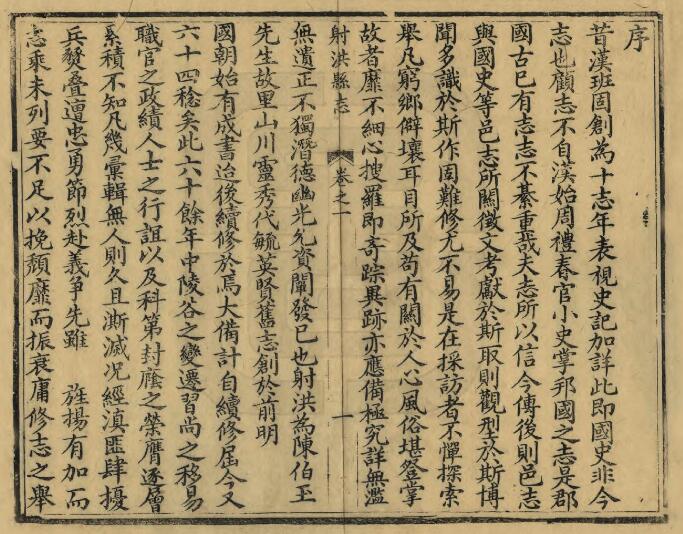 序
昔漢班固創為十志年表視史記加詳此即國史非今
志也顧志不自漢始周禮春官小史掌邦國之志是郡
國古已有志志不綦重哉夫志所以信今傳後則邑志
與國史等邑志所關徵文考獻於斯取則觀型於斯博
聞多識於斯作固難修尤不易是在採訪者不憚探索
舉凡窮鄉僻壤耳目所及苟有關於人心風俗堪登掌
故者靡不細心搜羅即奇踪異跡亦應備極究詳無濫
射洪縣志
卷之一
一
無遺正不獨潛德幽光允資闡發已也射洪為陳伯玉
先生故里山川靈秀代毓英賢舊志創於前明
國朝始有成書迨後續修於焉大備計自續修屆今又
六十四稔矣此六十餘年中陵谷之變遷習尚之移易
職官之政績人士之行誼以及科第封廕之榮膺逐層
累積不知凡幾彙輯無人則久且澌滅况經滇匪肆擾
兵燹叠遭忠勇節烈赴義爭先雖 旌揚有加而
志乘未列要不足以挽頹靡而振衰庸修志之舉